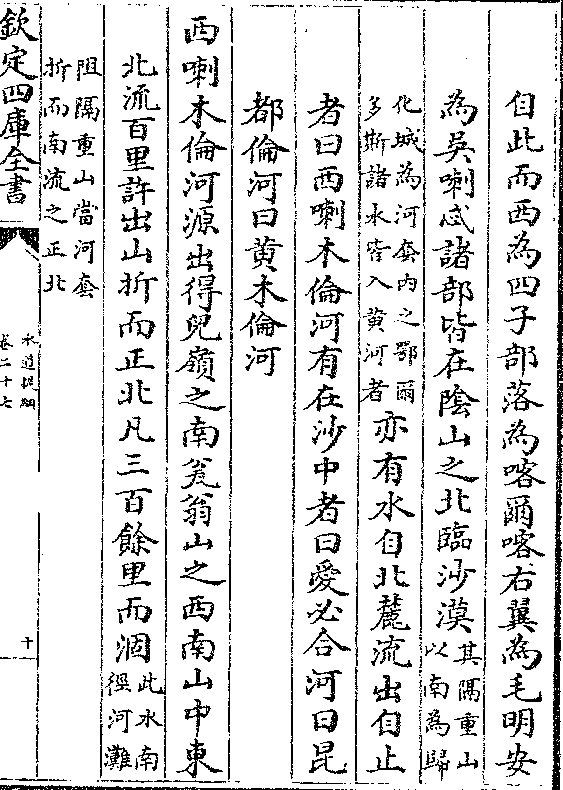 自此而西為四子部落為喀爾喀右翼為毛明安
為吳喇忒諸部皆在陰山之北臨沙漠其隔重山以南為歸
化城為河套内之鄂爾多斯諸水皆入黄河者亦有水自北麓流出自止
者曰西喇木倫河有在沙中者曰愛必合河曰昆
都倫河曰黄木倫河
西喇木倫河源出得兒嶺之南翁翁山之西南山中東
北流百里許出山折而正北凡三百餘里而涸此水南徑河灘
阻隔重山當河套折而南流之正北
欽定四庫全書
水道提綱
卷二十七
十